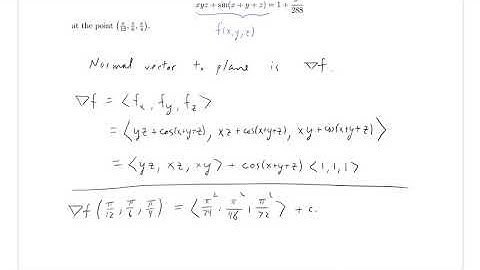 xyz + sin(x + y + z) = 1 + /288
at the point (π/12, π/6, π/4).
f(x,y,z)
Normal vector to plane is ∇f.
∇f = ⟨f_x, f_y, f_z⟩
= ⟨yz + cos(x+y+z), xz + cos(x+y+z), xy + cos(x+y+z)⟩
= ⟨yz, xz, xy⟩ + cos(x+y+z) ⟨1,1,1⟩
∇f(π/12, π/6, π/4) = ⟨π²/24, π²/48, π²/72⟩ + c